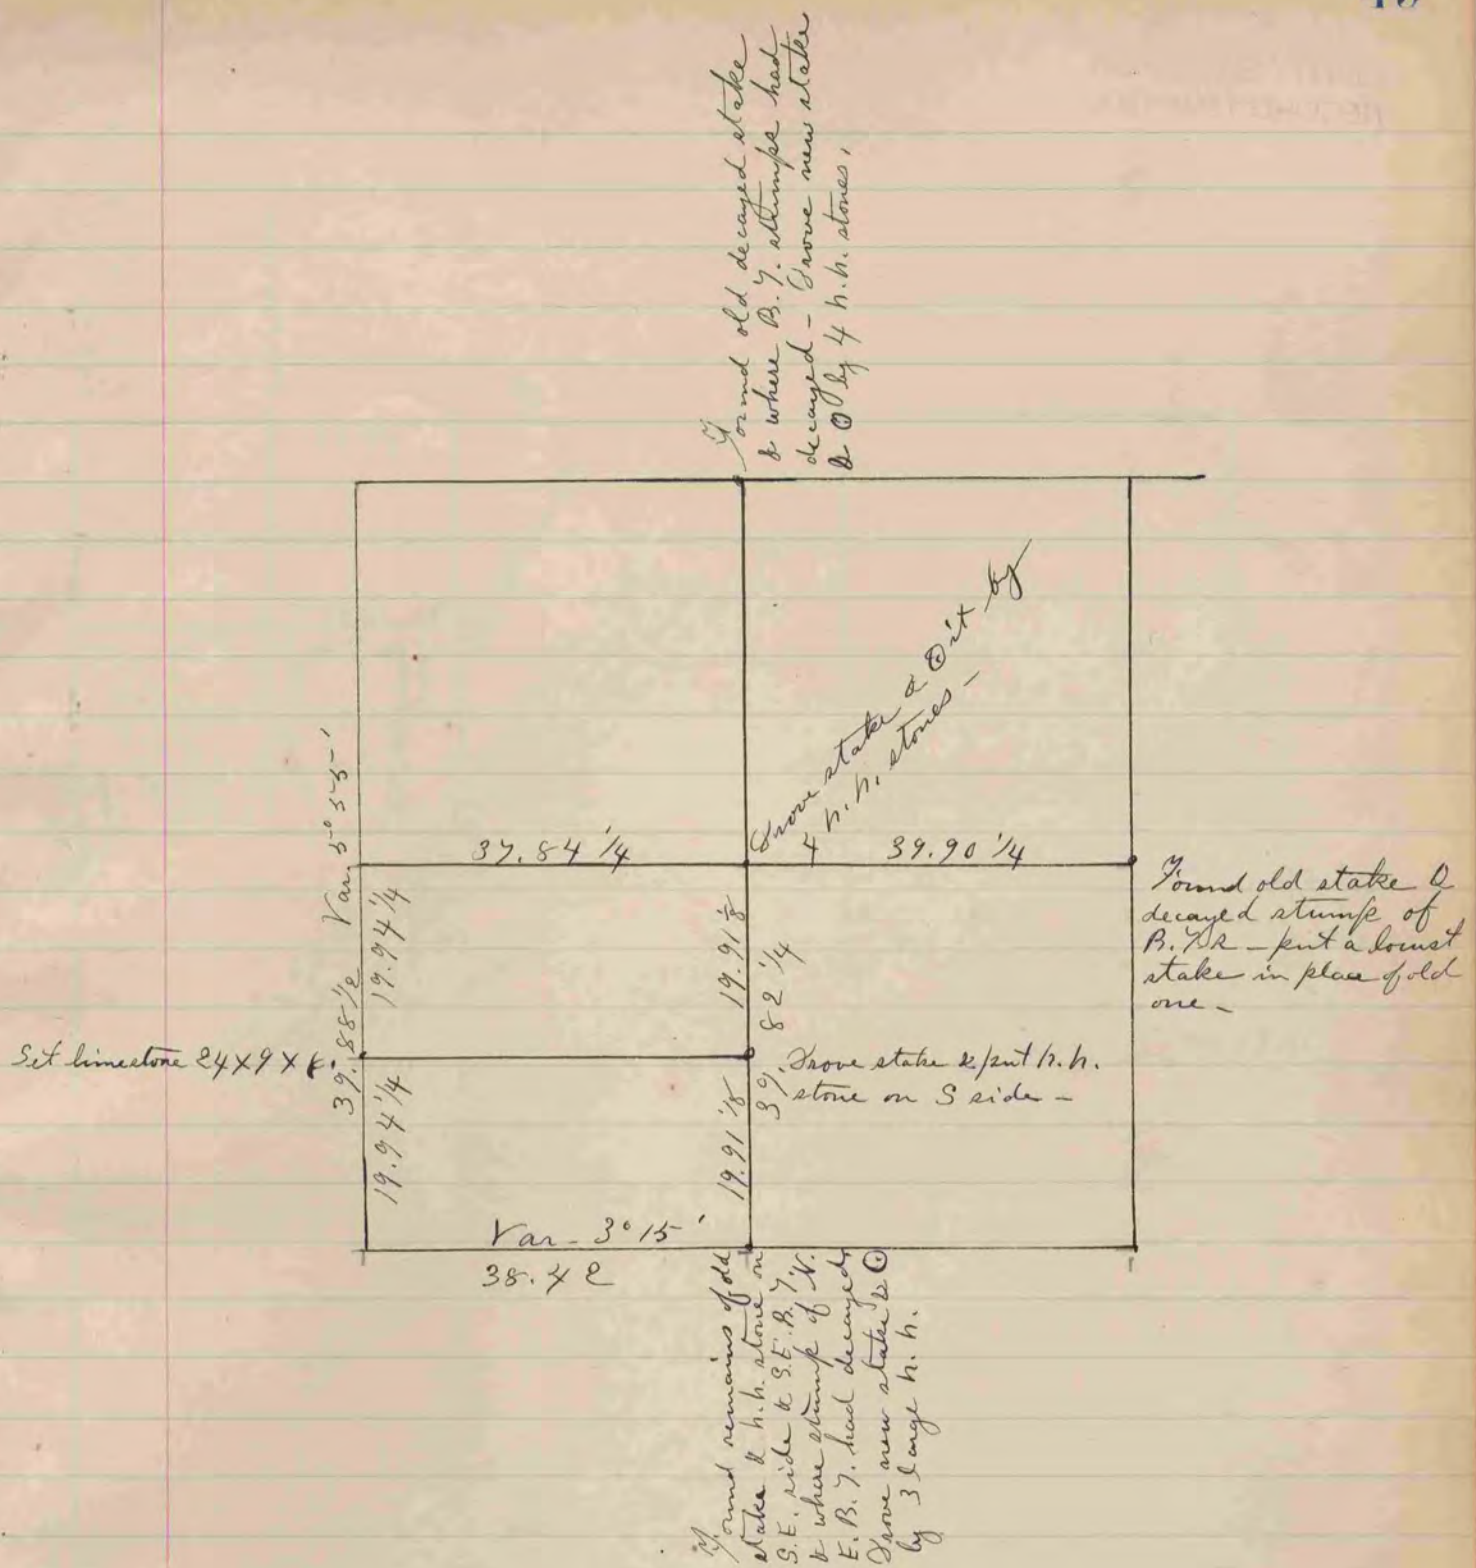 Found old decayed stake
& where B.T. stumps had
decayed - Drove new stake
& ⊙ by 4 h.h. stones.
Drove stake & ⊙ it by
4 h.h. stones -
Var. 5° 55'
37.84 1/4
39.90 1/4
Found old stake &
decayed stump of
B.T.s - put a locust
stake in place of old
one -
19.94 1/4
19.91 1/8
39.88 1/2
39.82 1/4
Set limestone 24 x 9 x
Drove stake & put h.h.
stone on S side -
19.94 1/4
19.91 1/8
Var - 3° 15'
38.42
Found remains of old
stake & h.h. stone on
S.E. side & S.E. B.T.
& where stump of N.
E. B.T. had decayed
Drove new stake & ⊙
by 3 large h.h.